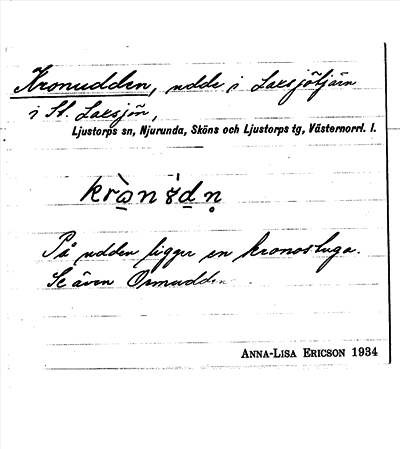 Kronudden, udde i Laxsjötjärn
i St. Laxsjön,
Ljustorps sn, Njurunda, Sköns och Ljustorps tg, Västernorrl. l.
På udden ligger en kronostuga.
Se även Ormudden
ANNA-LISA ERICSON 1934